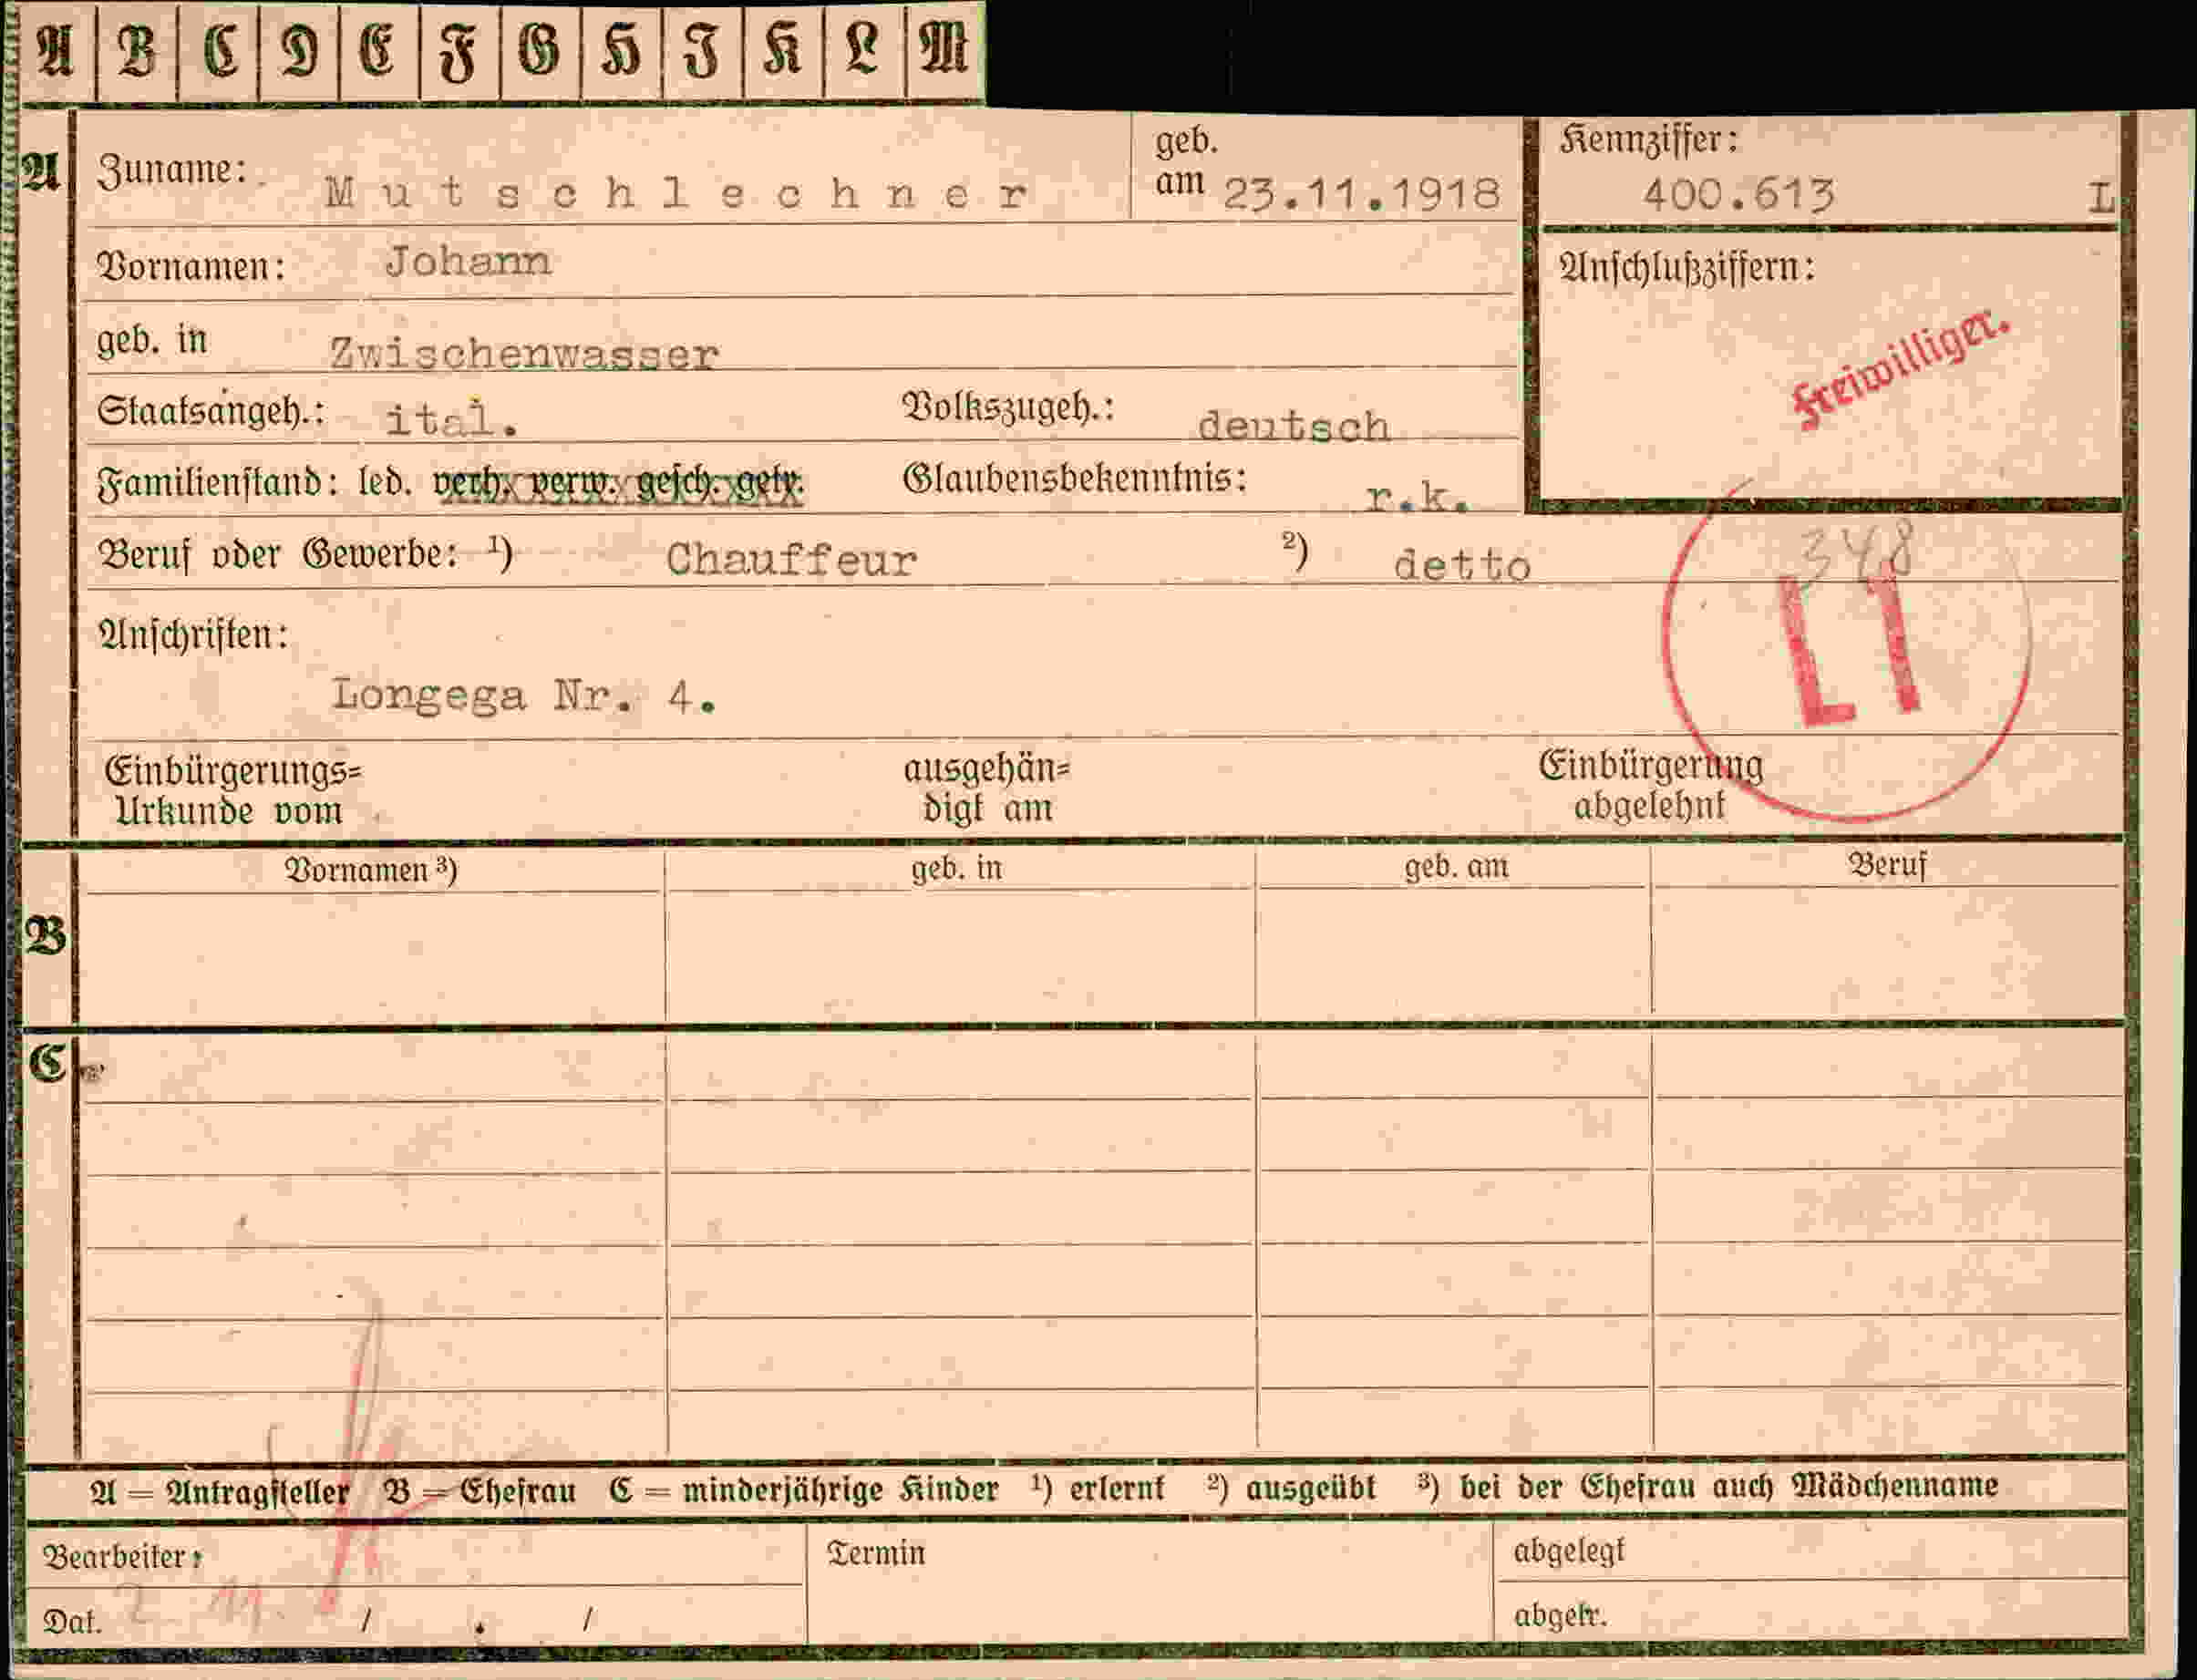 A B C D E F G H J K L M
A Zuname: Mutschlechner geb. am 23.11.1918 Kennziffer: 400.613 L
Vornamen: Johann Anschlußziffern:
Freiwilliger.
geb. in Zwischenwasser
Staatsangeh.: ital. Volkszugeh.: deutsch
Familienstand: led. verh. verw. gesch. getr. Glaubensbekenntnis: r.k.
Beruf oder Gewerbe: ¹) Chauffeur ²) detto
348
L1
Anschriften:
Longega Nr. 4.
Einbürgerungs= ausgehän= Einbürgerung
Urkunde vom digt am abgelehnt
Vornamen ³) geb. in geb. am Beruf
B
C
A = Antragsteller B = Ehefrau C = minderjährige Kinder ¹) erlernt ²) ausgeübt ³) bei der Ehefrau auch Mädchenname
Bearbeiter: Termin abgelegt
Dat. 2 11. / . / abgetr.